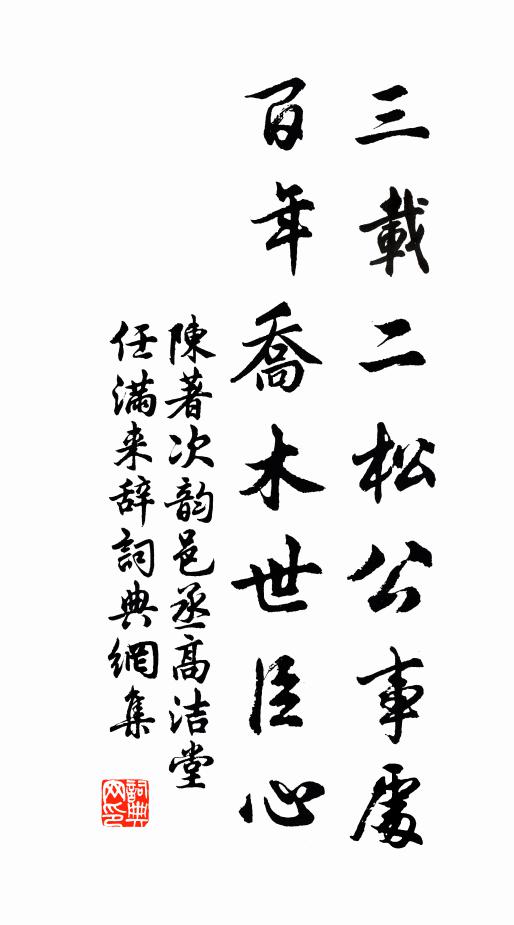 三載二松公事處
百年喬木世臣心
陳著次韵邑丞高洁堂
任滿来辞詞典網集
詞典
网印